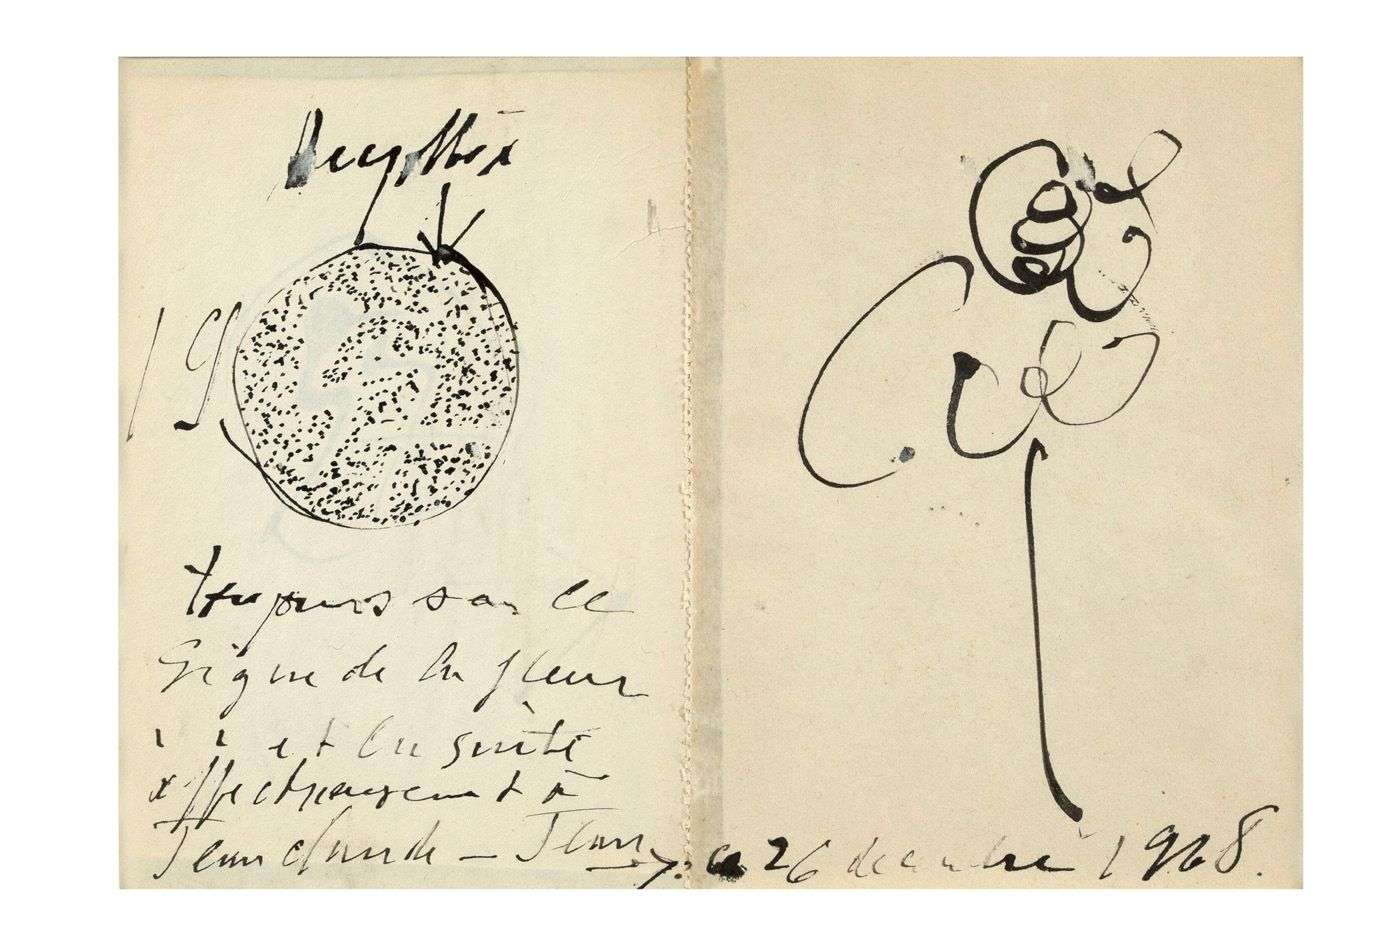 19
toujours sous le
Signe de la fleur
et la suite
affectueusement à
Jean claude — Jean
26 decembre 1968.